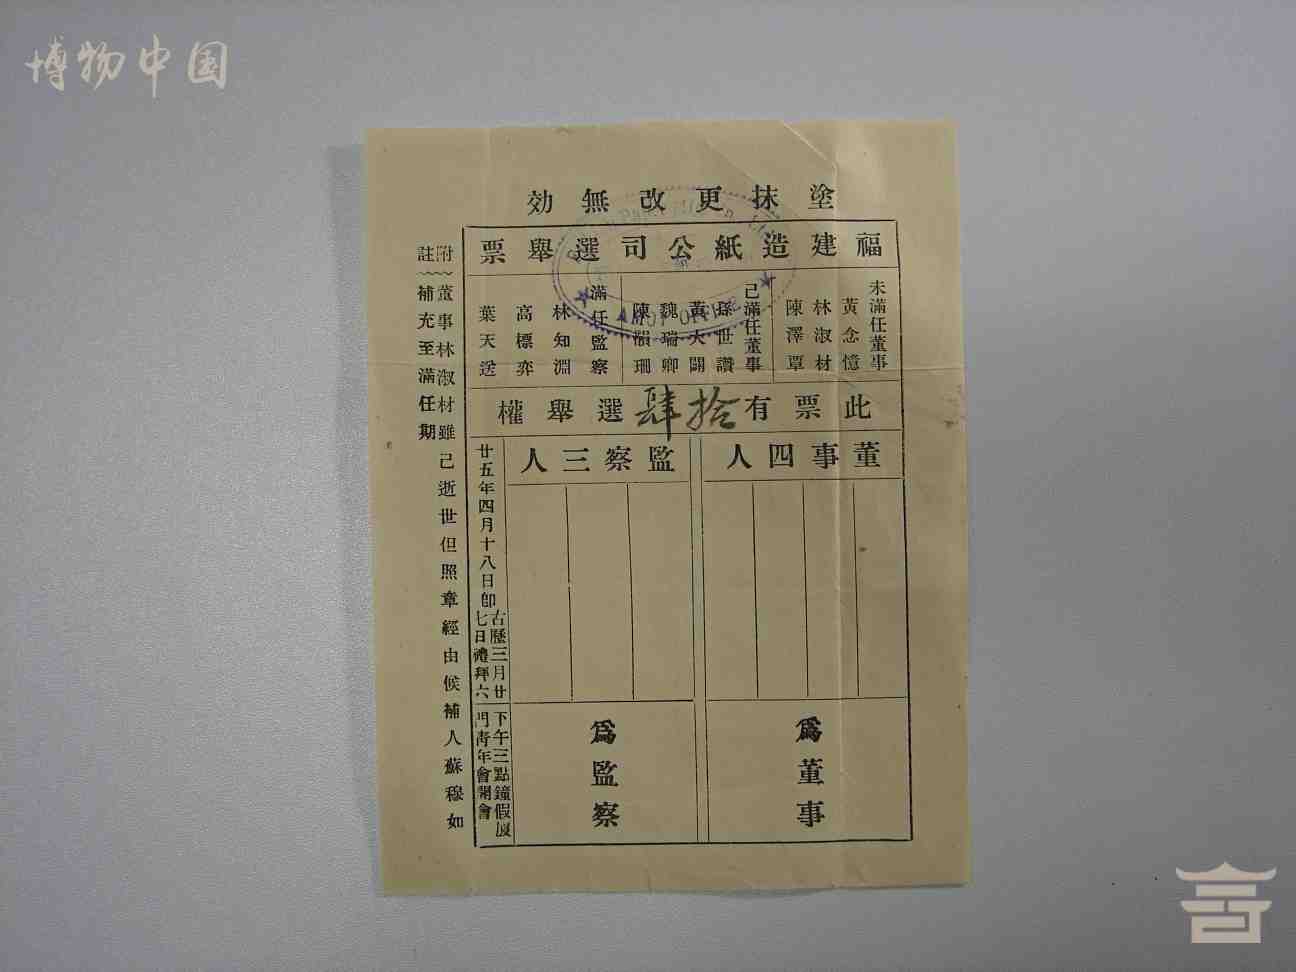 博物中国
塗抹更改無効
福建造紙公司選舉票
未滿任董事
黃念憶
林淑材
陳澤覃
己滿任董事
孫世讚
黃大闢
魏瑞卿
陳損珊
滿任監察
林知淵
高標弈
葉天送
此票有拾肆選舉權
董事四人
為董事
監察三人
為監察
廿五年四月十八日卽古歷三月廿七日禮拜六
下午三點鐘假厦門青年會開會
附註
董事林淑材雖己逝世但照章經由候補人蘇穆如
補充至滿任期
AMOY OFFICE